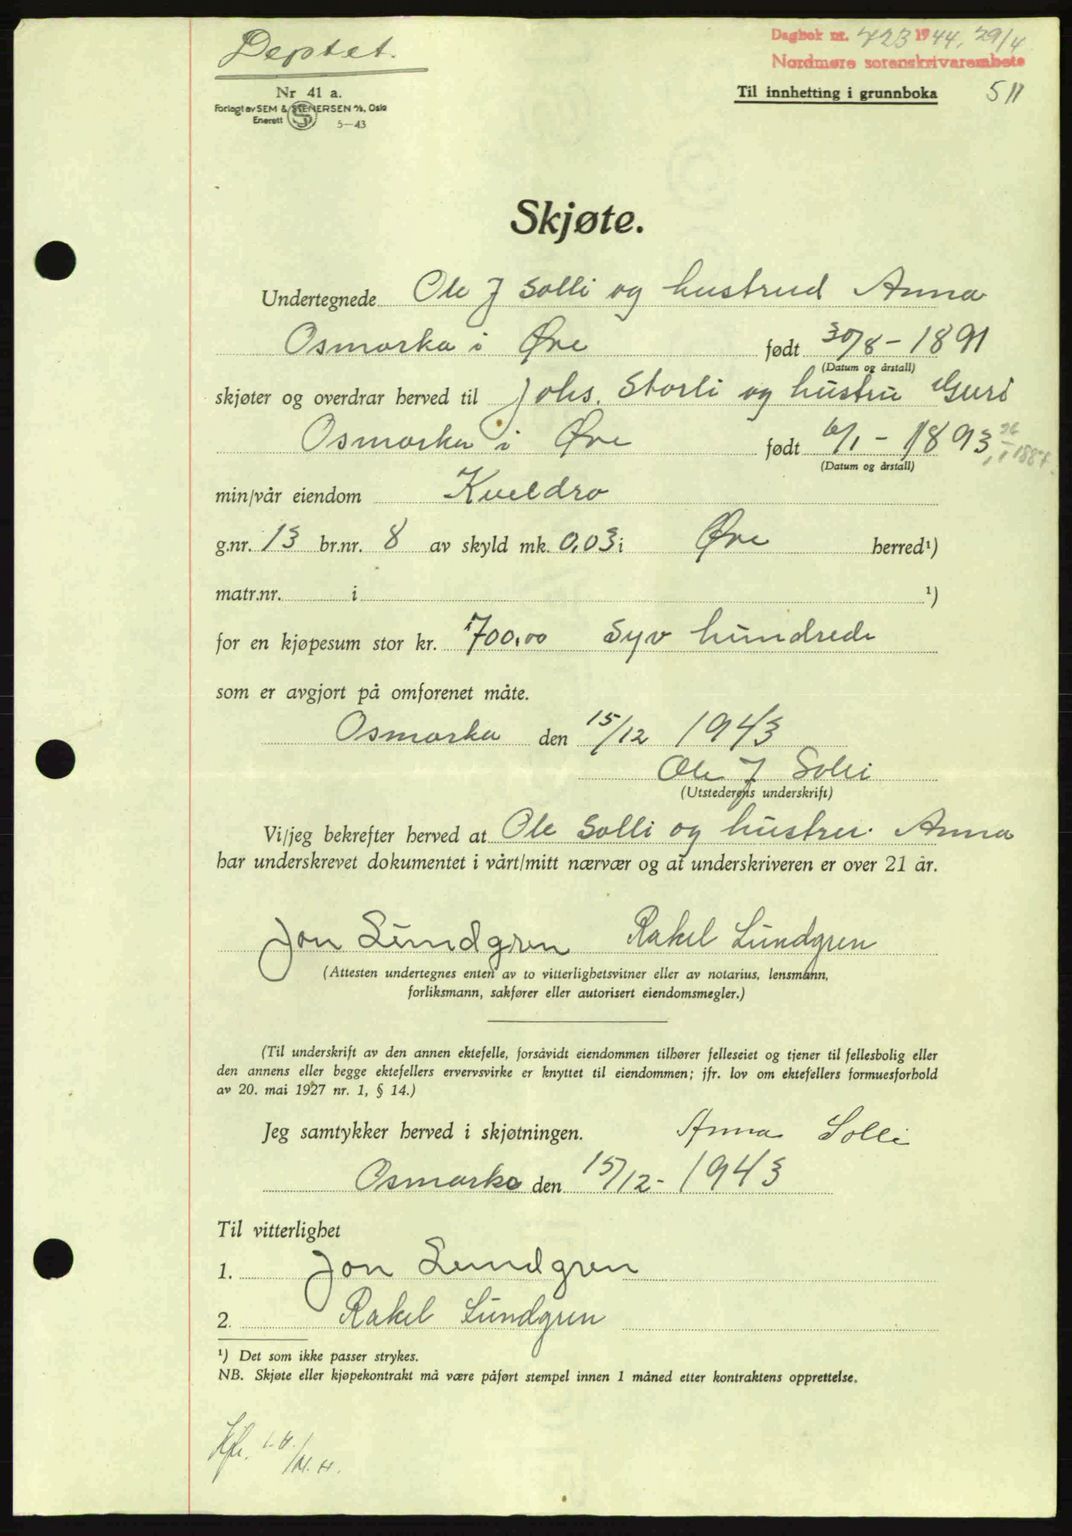 Deptet.
Dagbok nr. 723 1944, 29/4
Nordmøre sorenskriverembete
Nr 41 a.
Forlagt av SEM & STENERSEN A/S, Oslo
Enerett S 5—43
Til innhetting i grunnboka
511
Skjøte.
Undertegnede Ole J Solli og hustrud Anna
Osmarka i Øre født 30/8 - 1891
(Datum og årstall)
skjøter og overdrar herved til Johs. Storli og hustru Guri
Osmarka i Øre født 6/1 - 1893, 26/1 1887.
(Datum og årstall)
min/vår eiendom Kveldro
g.nr. 13 br.nr. 8 av skyld mk. 0,03 i Øre herred¹)
matr.nr. i ¹)
for en kjøpesum stor kr. 700,00 Syv hundrede
som er avgjort på omforenet måte.
Osmarka den 15/12 1943
Ole J Solli
(Utstederens underskrift)
Vi/jeg bekrefter herved at Ole Solli og hustru. Anna
har underskrevet dokumentet i vårt/mitt nærvær og at underskriveren er over 21 år.
Jon Lundgren Rakel Lundgren
(Attesten undertegnes enten av to vitterlighetsvitner eller av notarius, lensmann,
forliksmann, sakfører eller autorisert eiendomsmegler.)
(Til underskrift av den annen ektefelle, forsåvidt eiendommen tilhører felleseiet og tjener til fellesbolig eller
den annens eller begge ektefellers ervervsvirke er knyttet til eiendommen; jfr. lov om ektefellers formuesforhold
av 20. mai 1927 nr. 1, § 14.)
Jeg samtykker herved i skjøtningen. Anna Solli
Osmarka den 15/12 - 1943
Til vitterlighet
1. Jon Lundgren
2. Rakel Lundgren
¹) Det som ikke passer strykes.
NB. Skjøte eller kjøpekontrakt må være påført stempel innen 1 måned etter kontraktens opprettelse.